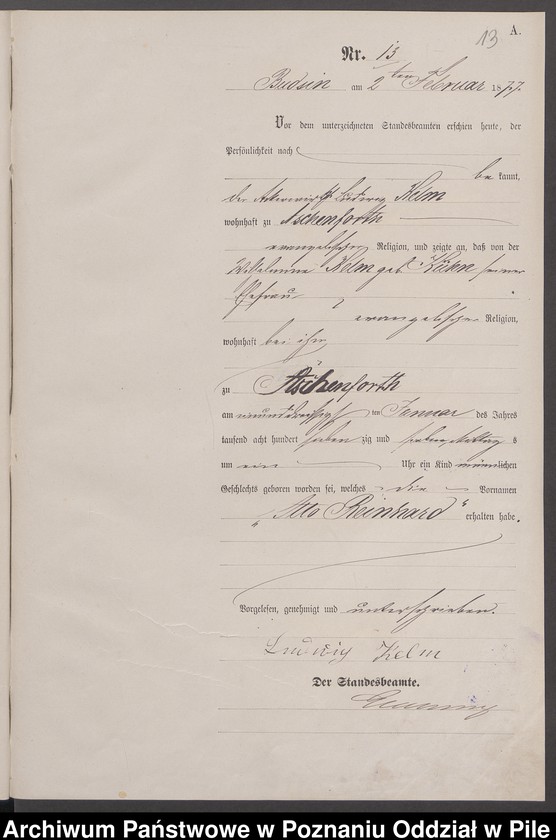 13 A.
Nr. 13
Budsin am 2ten Februar 1877.
Vor dem unterzeichneten Standesbeamten erschien heute, der
Persönlichkeit nach
bekannt,
der Ackerwirth Ludwig Kelm
wohnhaft zu Aschenforth
evangelischer Religion, und zeigte an, daß von der
Wilhelmine Kelm geb. Kühn seiner
Ehefrau
evangelischer Religion,
wohnhaft bei ihm
zu Aschenforth
am ten Januar des Jahres
tausend acht hundert siebenzig und sieben Mittags
um ein Uhr ein Kind männlichen
Geschlechts geboren worden sei, welches die Vornamen
„Otto Reinhard“ erhalten habe.
Vorgelesen, genehmigt und unterschrieben.
Ludwig Kelm
Der Standesbeamte.
Archiwum Państwowe w Poznaniu Oddział w Pile